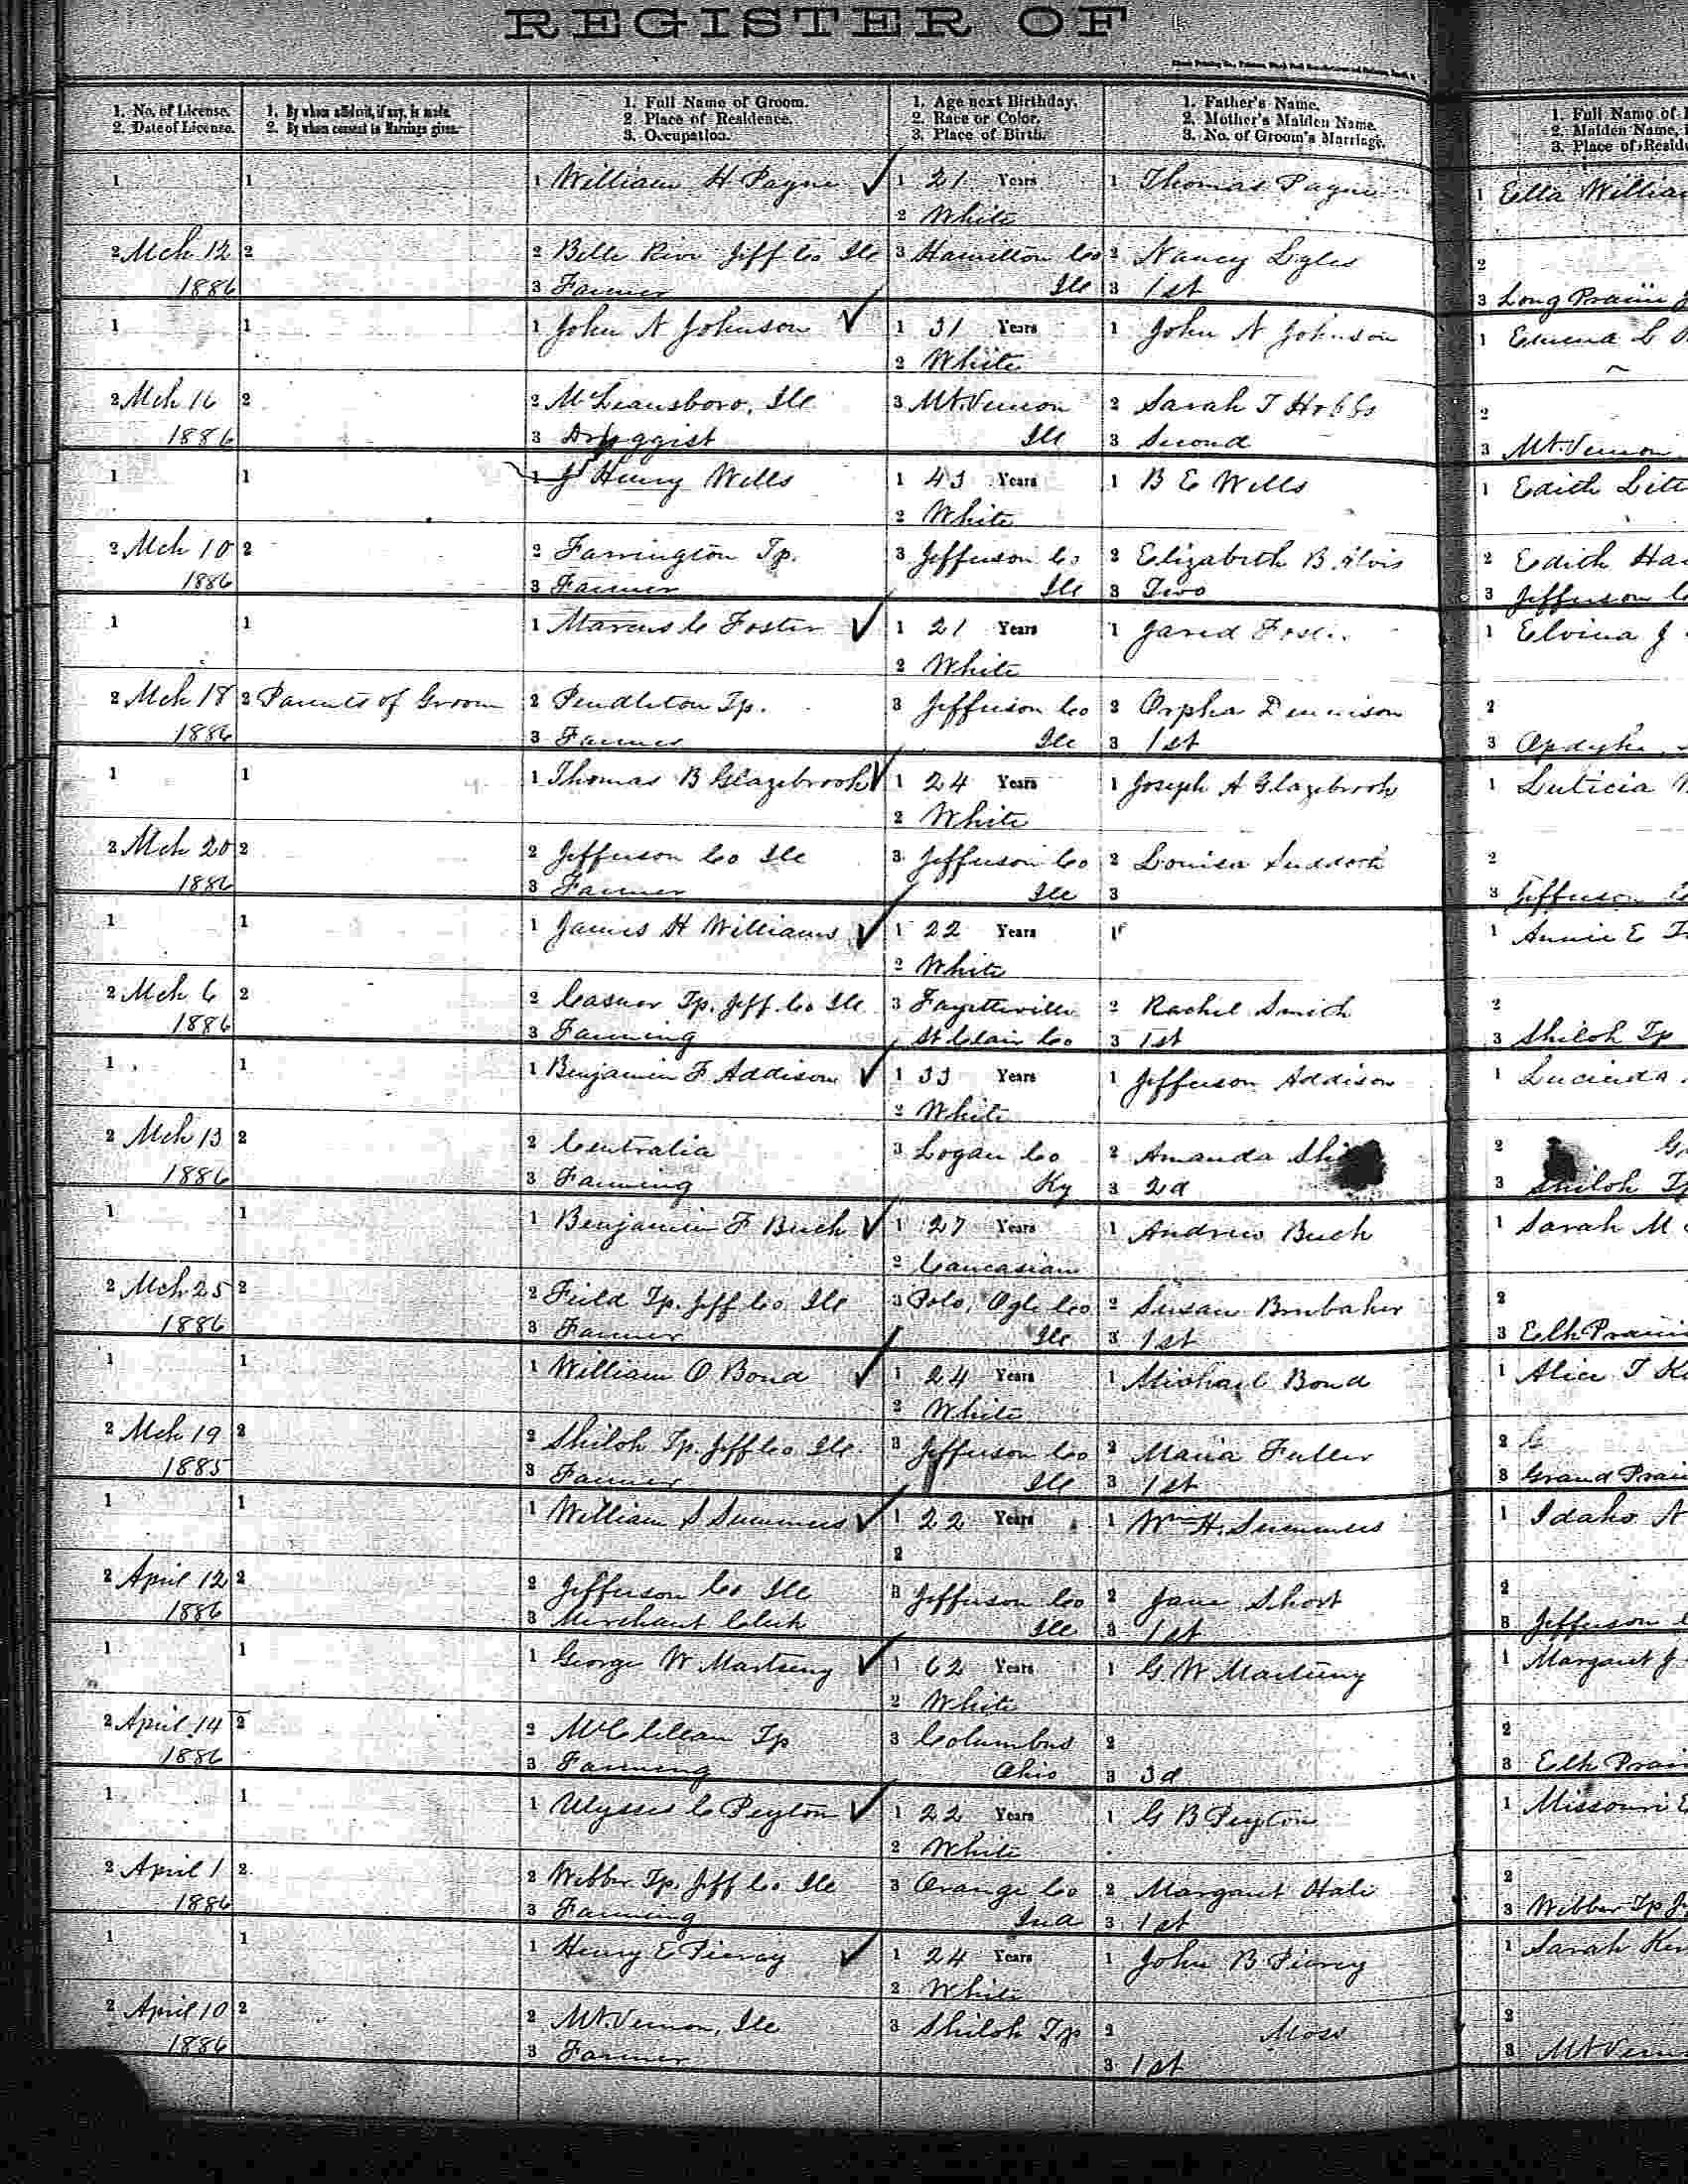 REGISTER OF
1. No. of License. 1. By whom affidavit, if any, is made. 1. Full Name of Groom. 1. Age next Birthday. 1. Father's Name. 1. Full Name of
2. Date of License. 2. By whom consent to Marriage given. 2. Place of Residence. 2. Race or Color. 2. Mother's Maiden Name. 2. Maiden Name,
3. Occupation. 3. Place of Birth. 3. No. of Groom's Marriage. 3. Place of Resid
1 1 1 William H Payne ✓ 1 21 Years 1 Thomas Payne 1 Ella William
2 White
2 Mch 12 2 2 Belle Rive Jeff Co Ill 3 Hamilton Co 2 Nancy Lyles 2
1886 3 Farmer Ill 3 1st 3 Long Prairie
1 1 1 John N Johnson ✓ 1 31 Years 1 John N Johnson 1
2 White
2 Mch 16 2 2 McLeansboro, Ill 3 Mt. Vernon 2 Sarah T Hobbs 2
1886 3 Druggist Ill 3 Second 3 Mt. Vernon
1 1 1 J Henry Wells 1 43 Years 1 B E Wells 1 Edith
2 White
2 Mch 10 2 2 Farrington Tp. 3 Jefferson Co 2 Elizabeth B 2 Edith Ha
1886 3 Farmer Ill 3 Two 3 Jefferson C
1 1 1 Marcus C Foster ✓ 1 21 Years 1 Jared Foster 1 Elvina J
2 White
2 Mch 18 2 Parents of Groom 2 Pendleton Tp. 3 Jefferson Co 2 Orpha Dennison 2
1886 3 Farmer Ill 3 1st 3 Opdyke
1 1 1 Thomas B Glazebrook ✓ 1 24 Years 1 Joseph A Glazebrook 1 Luticia
2 White
2 Mch 20 2 2 Jefferson Co Ill 3 Jefferson Co 2 Louisa Suddoth 2
1886 3 Farmer Ill 3 3 Jefferson
1 1 1 James H Williams ✓ 1 22 Years 1 1 Annie E
2 White
2 Mch 6 2 2 Casner Tp. Jeff Co Ill 3 Fayetteville 2 Rachel Smith 2
1886 3 Farming St Clair Co 3 1st 3 Shiloh Tp
1 1 1 Benjamin F Addison ✓ 1 33 Years 1 Jefferson Addison 1 Lucinda
2 White
2 Mch 13 2 2 Centralia 3 Logan Co 2 Amanda 2
1886 3 Farming Ky 3 2d 3 Shiloh Tp
1 1 1 Benjamin F Buch ✓ 1 27 Years 1 Andrew Buch 1 Sarah M
2 Caucasian
2 Mch 25 2 2 Field Tp. Jeff Co. Ill 3 Polo, Ogle Co 2 Susan Brubaker 2
1886 3 Farmer Ill 3 1st 3 Elk Prairie
1 1 1 William O Bond ✓ 1 24 Years 1 Michael Bond 1 Alice T
2 White
2 Mch 19 2 2 Shiloh Tp. Jeff Co. Ill 3 Jefferson Co 2 Maria Fuller 2 G
1885 3 Farmer Ill 3 1st 3 Grand Prai
1 1 1 William S Summers ✓ 1 22 Years 1 Wm H. Summers 1 Idaho
2
2 April 12 2 2 Jefferson Co Ill 3 Jefferson Co 2 Jane Short 2
1886 3 Merchant Clerk Ill 3 1st 3 Jefferson
1 1 1 George W Marteeny ✓ 1 62 Years 1 G W Marteeny 1 Margaret J
2 White
2 April 14 2 2 McClellan Tp 3 Columbus 2 2
1886 3 Farming Ohio 3 3d 3 Elk Prai
1 1 1 Ulysses C Peyton ✓ 1 22 Years 1 G B Peyton 1 Missouri E
2 White
2 April 1 2 2 Webber Tp. Jeff Co. Ill 3 Orange Co 2 Margaret Hale 2
1886 3 Farming Ind 3 1st 3 Webber Tp
1 1 1 Henry E Piercy ✓ 1 24 Years 1 John B Piercy 1 Sarah
2 White
2 April 10 2 2 Mt. Vernon, Ill 3 Shiloh Tp 2 Moss 2
1886 3 Farmer 3 1st 3 Mt Vern